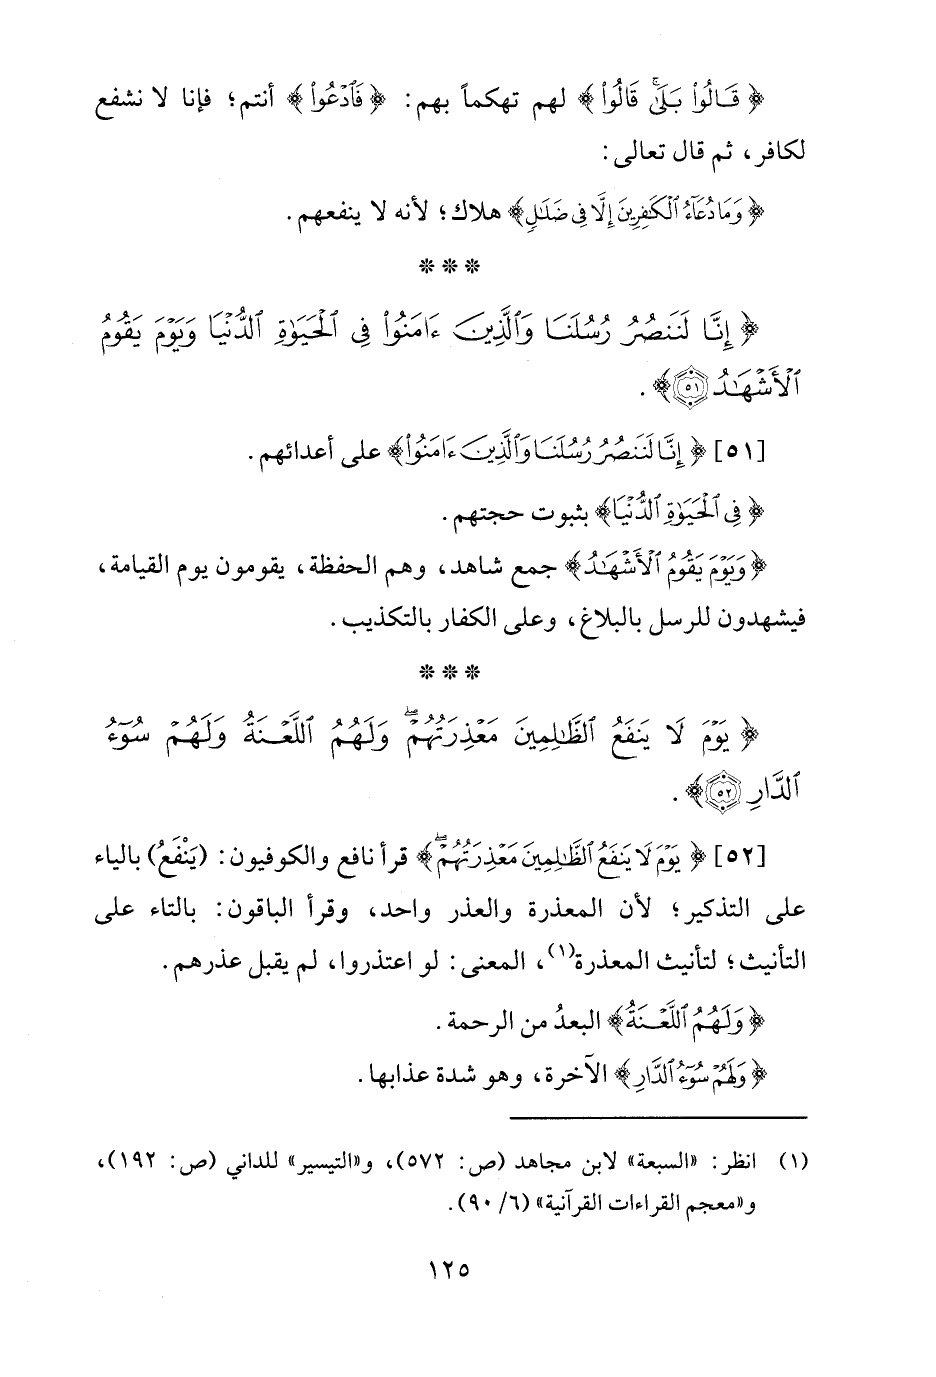 ﴿قَالُوا۟ بَلَىٰ ۚ قَالُوا۟﴾ لهم تهكماً بهم: ﴿فَٱدْعُوا۟﴾ أنتم؛ فإنا لا نشفع
لكافر، ثم قال تعالى:
﴿وَمَا دُعَـٰٓؤُا۟ ٱلْكَـٰفِرِينَ إِلَّا فِى ضَلَـٰلٍ﴾ هلاك؛ لأنه لا ينفعهم.
* * *
﴿إِنَّا لَنَنصُرُ رُسُلَنَا وَٱلَّذِينَ ءَامَنُوا۟ فِى ٱلْحَيَوٰةِ ٱلدُّنْيَا وَيَوْمَ يَقُومُ
ٱلْأَشْهَـٰدُ ٥١﴾.
[٥١] ﴿إِنَّا لَنَنصُرُ رُسُلَنَا وَٱلَّذِينَ ءَامَنُوا۟﴾ على أعدائهم.
﴿فِى ٱلْحَيَوٰةِ ٱلدُّنْيَا﴾ بثبوت حجتهم.
﴿وَيَوْمَ يَقُومُ ٱلْأَشْهَـٰدُ﴾ جمع شاهد، وهم الحفظة، يقومون يوم القيامة،
فيشهدون للرسل بالبلاغ، وعلى الكفار بالتكذيب.
* * *
﴿يَوْمَ لَا يَنفَعُ ٱلظَّـٰلِمِينَ مَعْذِرَتُهُمْ ۖ وَلَهُمُ ٱللَّعْنَةُ وَلَهُمْ سُوٓءُ
ٱلدَّارِ ٥٢﴾.
[٥٢] ﴿يَوْمَ لَا يَنفَعُ ٱلظَّـٰلِمِينَ مَعْذِرَتُهُمْ ۖ﴾ قرأ نافع والكوفيون: (يَنْفَعُ) بالياء
على التذكير؛ لأن المعذرة والعذر واحد، وقرأ الباقون: بالتاء على
التأنيث؛ لتأنيث المعذرة(١)، المعنى: لو اعتذروا، لم يقبل عذرهم.
﴿وَلَهُمُ ٱللَّعْنَةُ﴾ البعدُ من الرحمة.
﴿وَلَهُمْ سُوٓءُ ٱلدَّارِ﴾ الآخرة، وهو شدة عذابها.
(١) انظر: «السبعة» لابن مجاهد (ص: ٥٧٢)، و«التيسير» للداني (ص: ١٩٢)،
و«معجم القراءات القرآنية» (٦/ ٩٠).
١٢٥